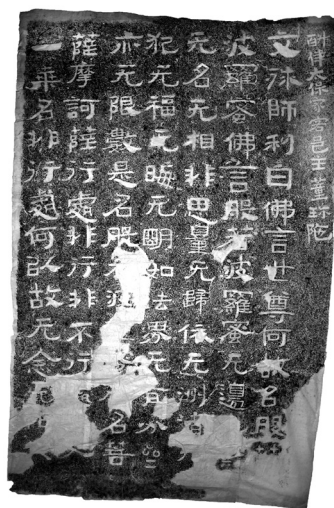 斛律太保家客邑主董珍陀
文殊師利白佛言世尊何故名般若
波羅蜜佛言般若波羅蜜无邊
无名无相非思量无歸依无洲渚
犯无福无晦无明如法界无有分
亦无限數是名般若波 名菩
薩摩訶薩行處非行非不行 入
一乘名非行處何以故无念